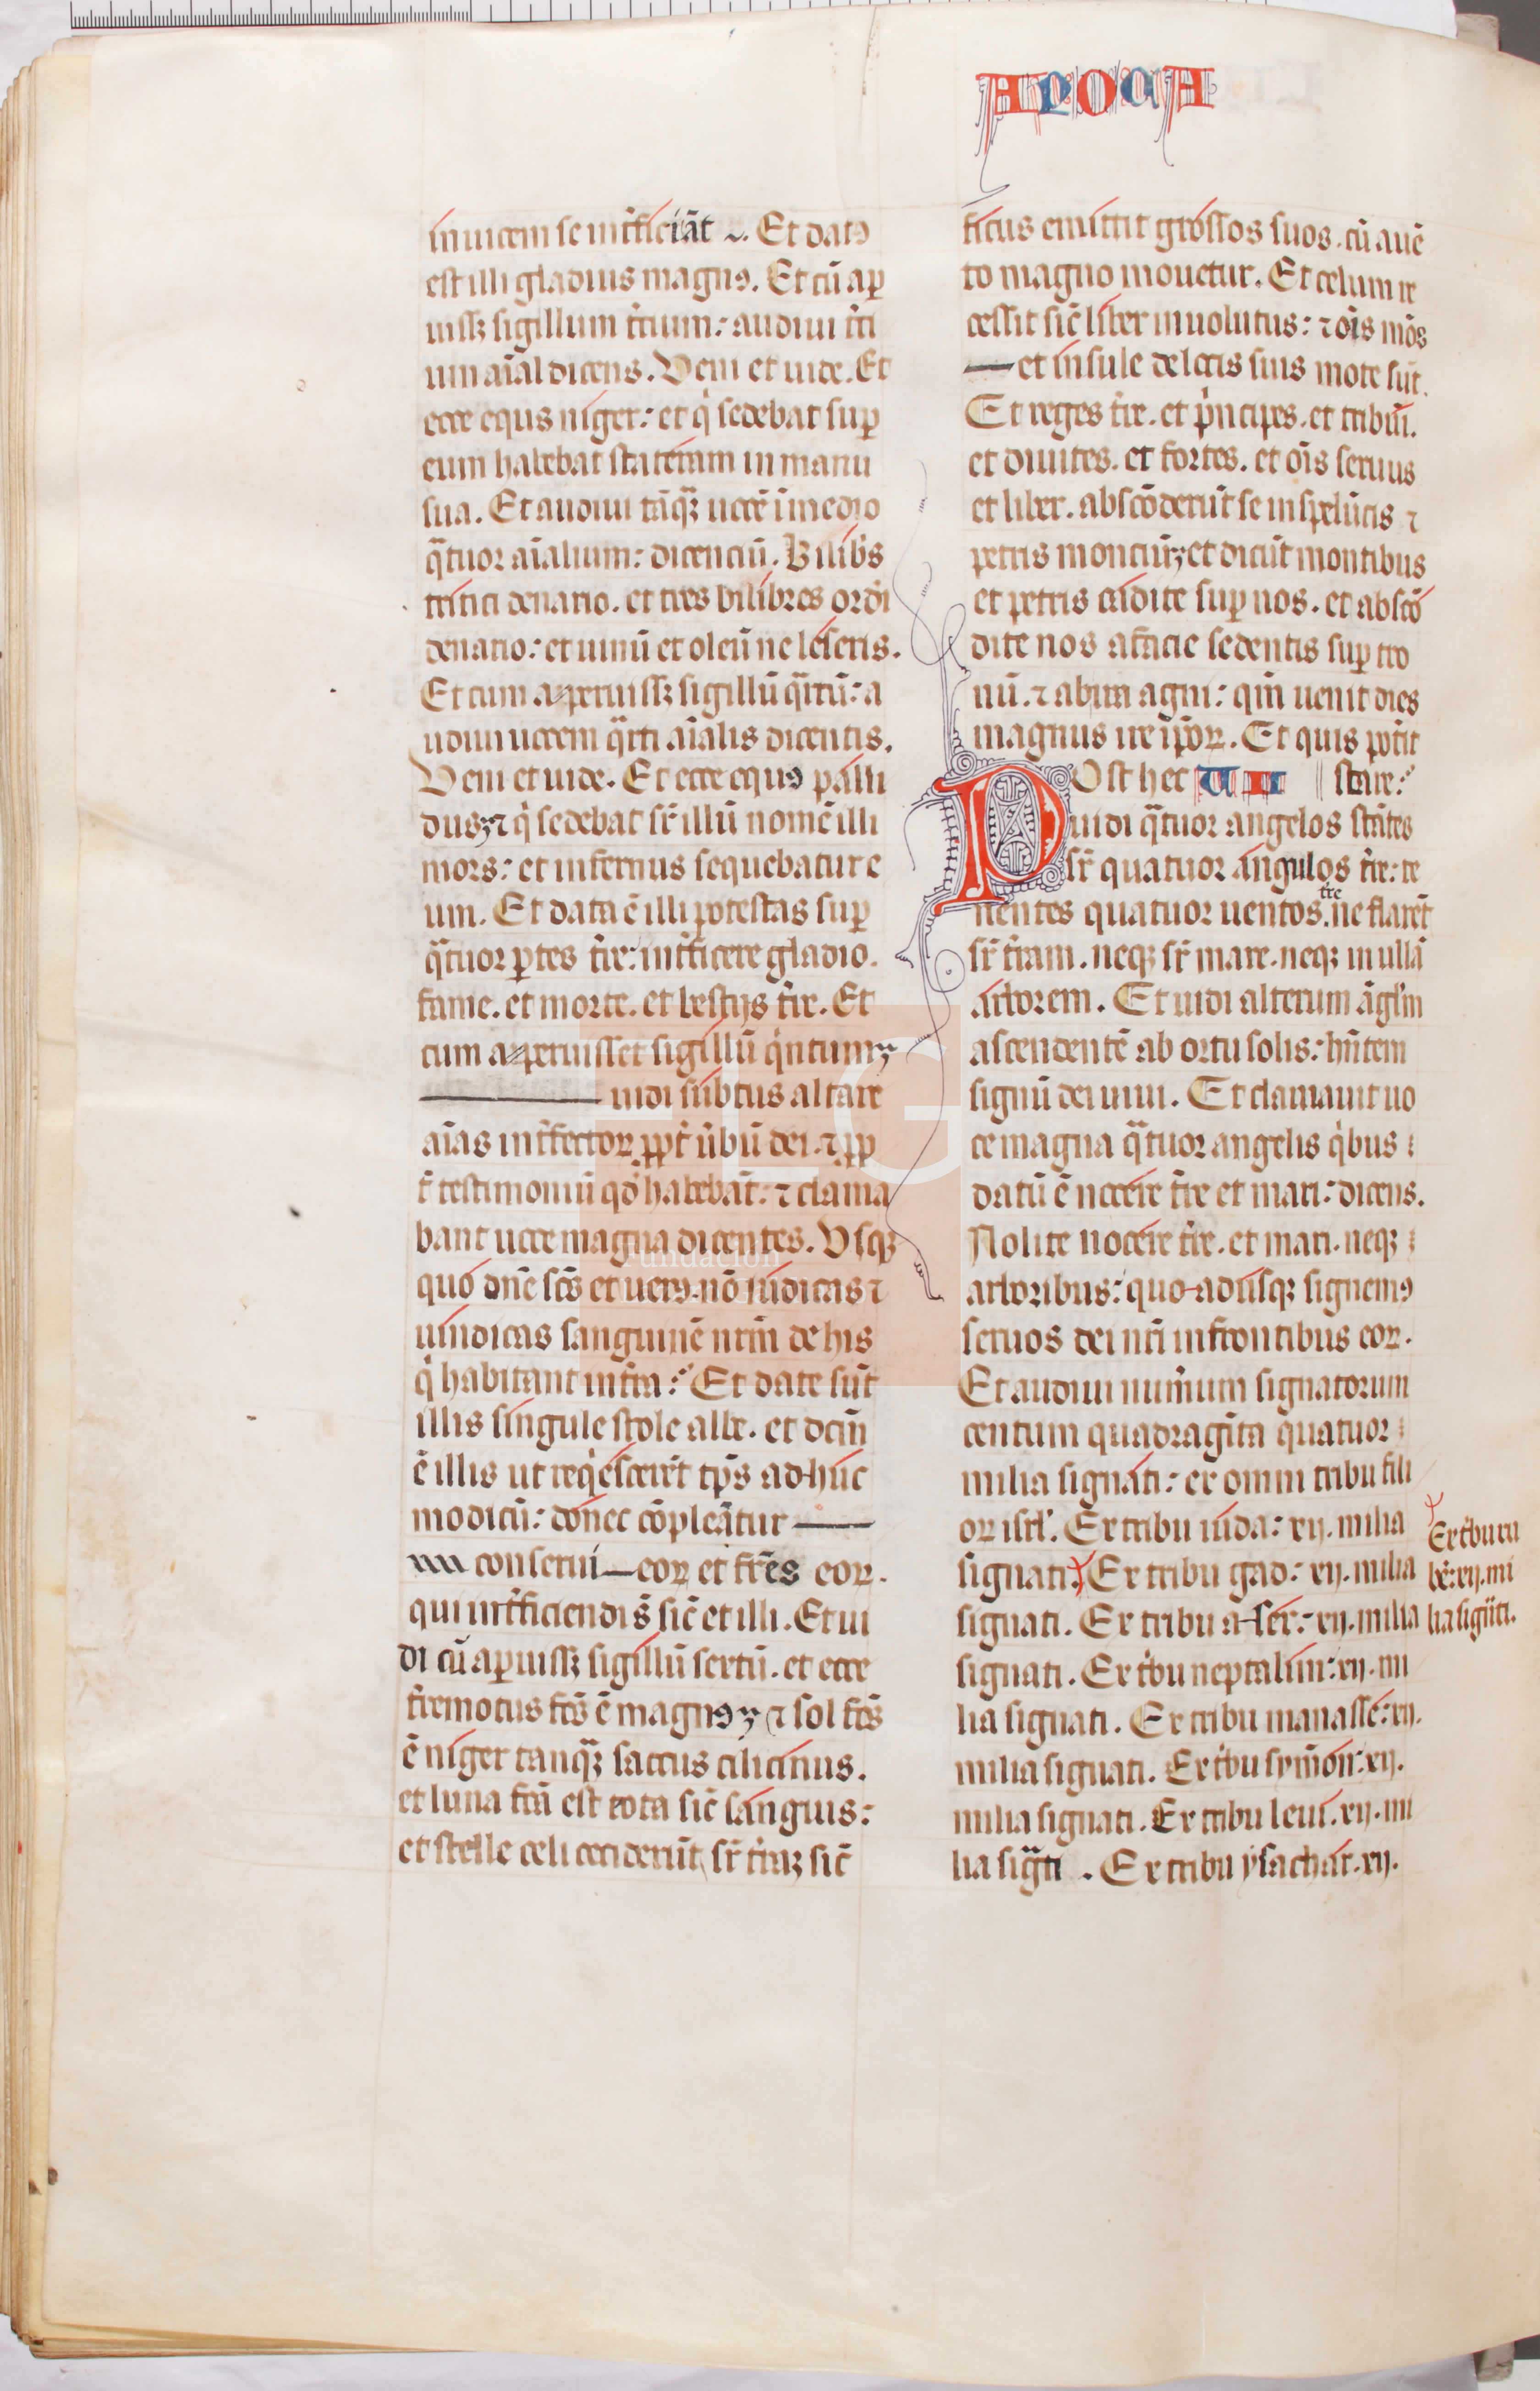 APOCA
inuicem se int̄ficiāt. Et datꝰ
est illi gladius magnꝰ. Et cū ap̲
uissꝫ sigillum t̄cium: audiui t̄ci
um aīal dicens. Veni et uide. Et
ecce equs niger: et q̇ sedebat sup̲
eum habebat stateram in manu
sua. Et audiui tāqꝫ uocē ī medio
q̄tuor aīalium: dicenciū. Bilib̄s
tritici denario. et tres bilibres ordi
denario: et uinū et oleū ne leseris.
Et cum apperuissꝫ sigillū q̄rtū: a
udiui uocem q̄rti aīalis dicentis.
Veni et uide. Et ecce equꝰ palli
dus ⁊ q̇ sedebat sr̄ illū nomē illi
mors: et infernus sequebatur e
um. Et data ē illi potestas sup̲
q̄tuor ꝑtes t̄re: int̄ficere gladio.
fame. et morte. et bestijs t̄re. Et
cum apperuisset sigillū q̇ntum
uidi subtus altare
aīas int̄fectoꝝ ꝓpt̄ ūbū dei. ⁊ ꝓp
t̄ testimoniū qd̄ habebāt: ⁊ clama
bant uoce magna dicentes. Vsqꝫ
quo dn̄e sc̄s et uerꝰ. nō iudicas ⁊
uindicas sanguinē nr̄m de his
q̇ habitant in t̄ra: Et date sūt
illis singule stole albe. et dc̄m
ē illis ut req̇esceret tp̄s ad huc
modicū: donec cōpleātur
conserui eoꝝ et fr̄es eoꝝ.
qui int̄ficiendi s̄ sic̄ et illi. Et ui
di cū apuissꝫ sigillū sextū. et ecce
t̄remotus fc̄s ē magnꝰ ⁊ sol fc̄s
ē niger tanqꝫ saccus cilicinus.
et luna fc̄a est tota sic̄ sanguis:
et stelle celi ceciderūt sr̄ t̄raꝫ sic̄
ficus emittit grossos suos. cū a uē
to magno mouetur. Et celum re
cessit sic̄ liber inuolutus: ⁊ oīs mōs
et insule de locis suis mote sūt.
Et reges t̄re. et p̄ncipes. et tribūi.
et diuites. et fortes. et oīs seruus
et liber. abscōderūt se in spelūcis ⁊
petris monciū et dicūt montibus
et petris cadite sup̲ nos. et abscō
dite nos a facie sedentis sup̲ tro
nū. ⁊ ab ira agni: qm̄ uenit dies
magnus ire ip̄oꝝ. Et quis pot̄it
Post hec VII stare:
uidi q̄tuor angelos stātes
sr̄ quatuor angulos t̄re: te
nentes quatuor uentos. t̄re ne flarēt
sr̄ t̄ram. neqꝫ sr̄ mare. neqꝫ in ullā
arborem. Et uidi alterum āgl̄m
ascendentē ab ortu solis: hn̄tem
signū dei uiui. Et clamauit uo
ce magna q̄tuor angelis q̇bus
datū ē nocere t̄re et mari: dicens.
Nolite nocere t̄re. et mari. neqꝫ
arboribus: quo adusqꝫ signemꝰ
seruos dei nr̄i in frontibus eoꝝ.
Et audiui numerum signatorum
centum quadraginta quatuor
milia signati: ex omni tribu fili
oꝝ isrl̄. Ex tribu iuda: xij. milia
signati. Ex tribu gad: xij. milia
signati. Ex tribu aser: xij. milia
signati. Ex t̄bu neptalim: xij. mi
lia signati. Ex tribu manasse: xij.
milia signati. Ex t̄bu symon: xij.
milia signati. Ex tribu leui. xij. mi
lia sig̈ti. Ex tribu ysachar. xij.
Ex t̄bu ru
bē: xij. mi
lia sig̈ti.